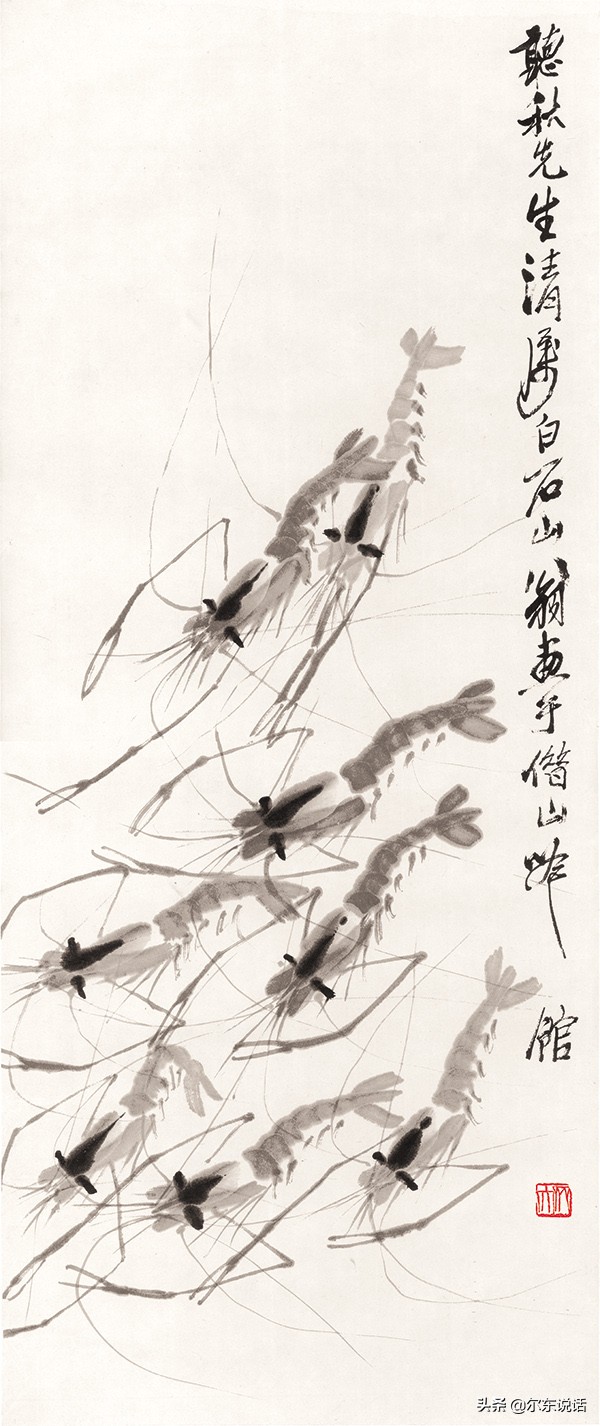 聽秋先生清屬白石山翁畫于借山吟館
头条 @尔东说话